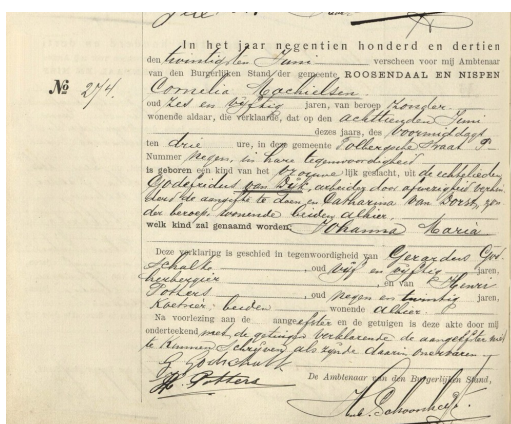 In het jaar negentien honderd en dertien
den twintigsten Juni verscheen voor mij Ambtenaar
van den Burgerlijken Stand der gemeente ROOSENDAAL EN NISPEN
№ 274.
Cornelia Machielsen
oud zes en vijftig jaren, van beroep zonder
wonende aldaar, die verklaarde, dat op den achttienden Juni
dezes jaars, des voormiddags
ten drie ure, in deze gemeente Tolbergsche straat
Nummer negen, in hare tegenwoordigheid
is geboren een kind van het vrouwelijk geslacht, uit de echtelieden
Godefridus van Dijk, arbeider, door afwezigheid verhin
derd de aangifte te doen en Catharina van Dorst, zon
der beroep, wonende beiden alhier.
welk kind zal genaamd worden: Johanna Maria
Deze verklaring is geschied in tegenwoordigheid van Gerardus God
schalk, oud vijf en vijftig jaren,
herbergier, en van Henri
Potters, oud negen en twintig jaren,
koetsier, beiden wonende alhier.
Na voorlezing aan de aangeefster en de getuigen is deze akte door mij
onderteekend, met de getuigen verklarende de aangeefster niet
te kunnen schrijven als zijnde daarin onervaren
G Godschalk
H. Potters
De Ambtenaar van den Burgerlijken Stand,